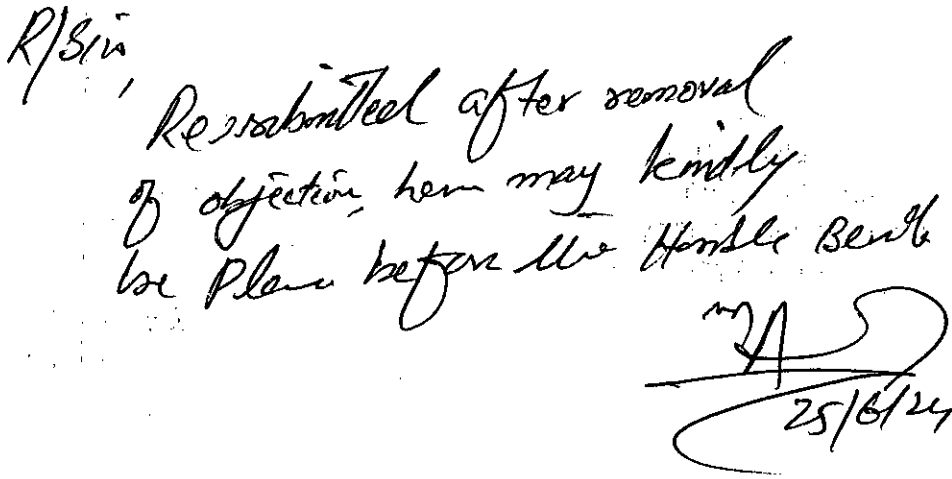 R/Sir,
Resubmitted after removal
of objection, hence may kindly
be Place before the Honble Bench
25/6/24